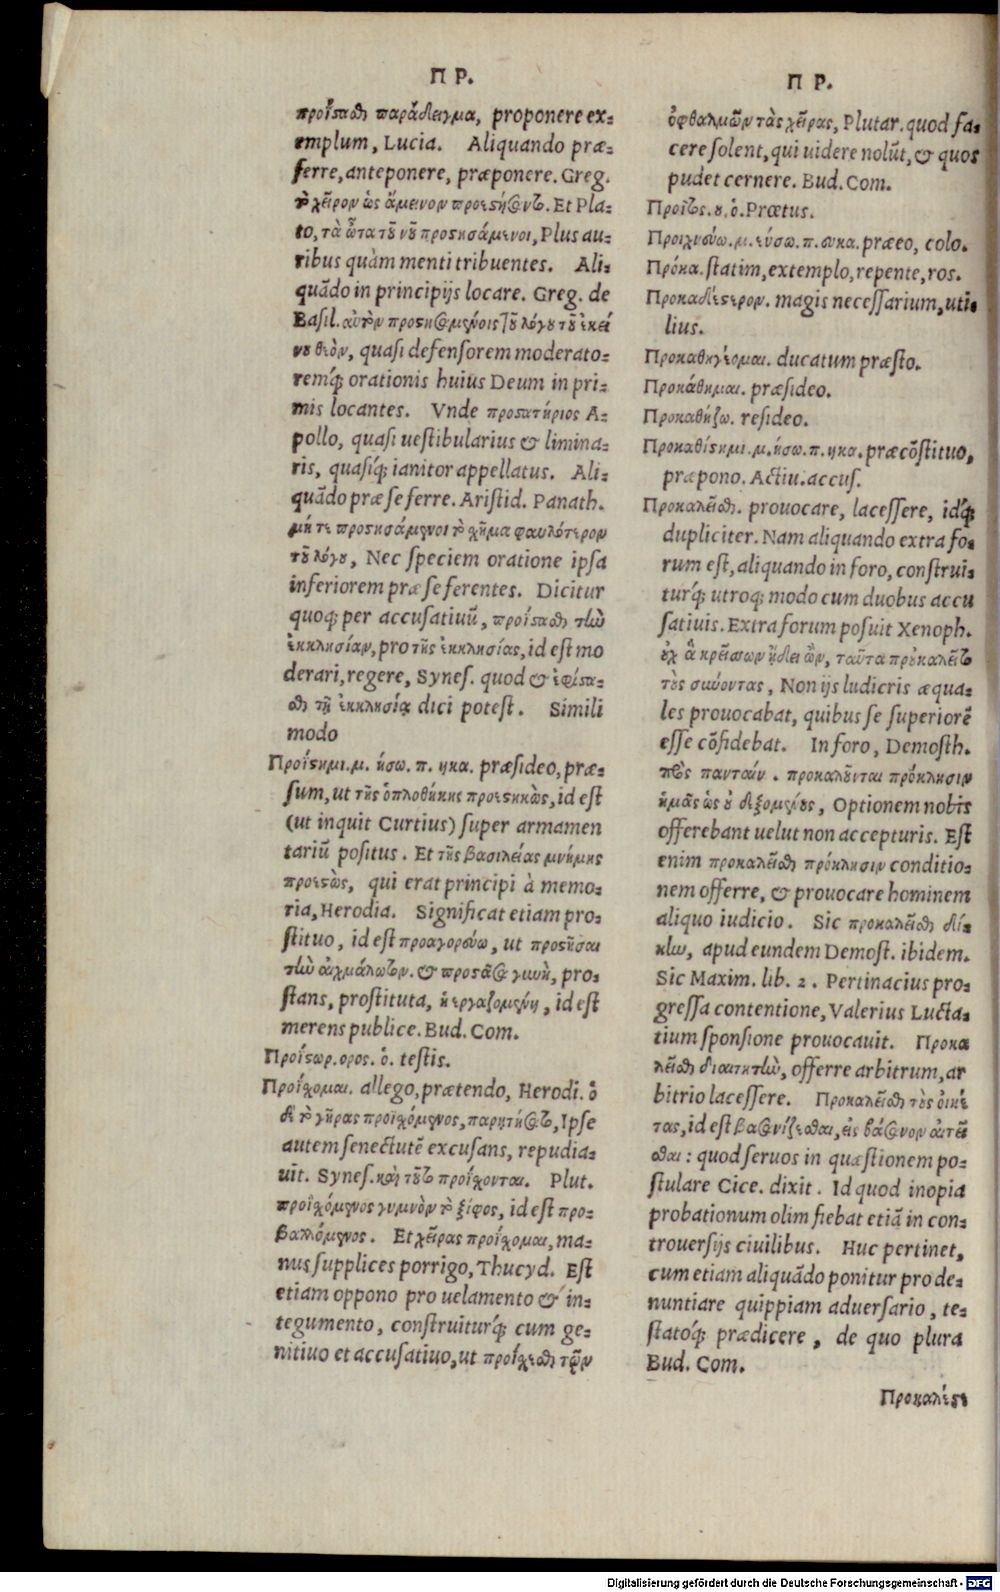 ΠΡ.
προΐστασθαι παράδειγμα, proponere ex-
emplum, Lucia. Aliquando præ-
ferre, anteponere, præponere. Greg.
τὸ χεῖρον ὡς ἄμεινον προεστήσαντο. Et Pla-
to, τὰ ὦτα τοῦ νοῦ προστησάμενοι, Plus au-
ribus quàm menti tribuentes. Ali-
quãdo in principijs locare. Greg. de
Basil. αὐτὸν προστησαμένοις τοῦ λόγου τοῦ ἐκεί
νου θεὸν, quasi defensorem moderato-
remq́; orationis huius Deum in pri-
mis locantes. Vnde προστατήριος A-
pollo, quasi uestibularius & limina-
ris, quasiq́; ianitor appellatus. Ali-
quãdo præ se ferre. Aristid. Panath.
μήτε προστησάμενοι τὸ χῆμα φαυλότερον
τοῦ λόγου, Nec speciem oratione ipsa
inferiorem præ se ferentes. Dicitur
quoq; per accusatiuũ, προΐστασθαι τὴν
ἐκκλησίαν, pro τῆς ἐκκλησίας, id est mo
derari, regere, Synes. quod & ἐφίστα-
σθαι τῇ ἐκκλησίᾳ dici potest. Simili
modo
Προΐστημι. μ. ήσω. π. ηκα. præsideo, præ-
sum, ut τῆς ὁπλοθήκης προεστηκὼς, id est
(ut inquit Curtius) super armamen
tariũ positus. Et τῆς βασιλείας μνήμης
προεστὼς, qui erat principi à memo-
ria, Herodia. Significat etiam pro-
stituo, id est προαγορεύω, ut προστῆσαι
τὴν αἰχμάλωτον. & προστᾶσα γυνὴ, pro-
stans, prostituta, ἡ ἐργαζομένη, id est
merens publice. Bud. Com.
Προΐστωρ. ορος. ὁ. testis.
Προΐσχομαι. allego, prætendo, Herodi. ὁ
δὲ τὸ γῆρας προϊσχόμενος, παρῃτήσατο, Ipse
autem senectutẽ excusans, repudia-
uit. Synes. καὶ τοῦτο προΐσχονται. Plut.
προϊσχόμενος γυμνὸν τὸ ξίφος, id est προ-
βαλλόμενος. Et χεῖρας προΐσχομαι, ma-
nus supplices porrigo, Thucyd. Est
etiam oppono pro uelamento & in-
tegumento, construiturq́; cum ge-
nitiuo et accusatiuo, ut προΐσχεσθαι τῶν
ΠΡ.
ὀφθαλμῶν τὰς χεῖρας, Plutar. quod fa-
cere solent, qui uidere nolũt, & quos
pudet cernere. Bud. Com.
Προῖτος. ου. ὁ. Prœtus.
Προιχνεύω. μ. εύσω. π. ευκα. præeo, colo.
Πρόκα. statim, extemplo, repente, ros.
Προκαδέστερον. magis necessarium, uti-
lius.
Προκαθηγέομαι. ducatum præsto.
Προκάθημαι. præsideo.
Προκαθήζω. resideo.
Προκαθίστημι. μ. ήσω. π. ηκα. præcõstituo,
præpono. Actiu. accus.
Προκαλεῖσθαι. prouocare, lacessere, idq́;
dupliciter. Nam aliquando extra fo-
rum est, aliquando in foro, construi-
turq́; utroq; modo cum duobus accu
satiuis. Extra forum posuit Xenoph.
οὐχ ἃ κρείσσων ᾔδει ὢν, ταῦτα προὐκαλεῖτο
τοὺς συνόντας, Non ijs ludicris æqua-
les prouocabat, quibus se superiorẽ
esse cõfidebat. In foro, Demosth.
πρὸς πανταίν. προκαλοῦνται πρόκλησιν
ἡμᾶς ὡς οὐ δεξομένους, Optionem nobis
offerebant uelut non accepturis. Est
enim προκαλεῖσθαι πρόκλησιν conditio-
nem offerre, & prouocare hominem
aliquo iudicio. Sic προκαλεῖσθαι δί-
κην, apud eundem Demost. ibidem.
Sic Maxim. lib. 2. Pertinacius pro-
gressa contentione, Valerius Lucta-
tium sponsione prouocauit. Προκα
λεῖσθαι διαιτητὴν, offerre arbitrum, ar
bitrio lacessere. Προκαλεῖσθαι τοὺς οἰκέ-
τας, id est βασανίζεσθαι, εἰς βάσανον αἰτεῖ
σθαι: quod seruos in quæstionem po-
stulare Cice. dixit. Id quod inopia
probationum olim fiebat etiã in con-
trouersijs ciuilibus. Huc pertinet,
cum etiam aliquãdo ponitur pro de-
nuntiare quippiam aduersario, te-
statoq́; prædicere, de quo plura
Bud. Com.
Προκαλέσο
Digitalisierung gefördert durch die Deutsche Forschungsgemeinschaft - DFG